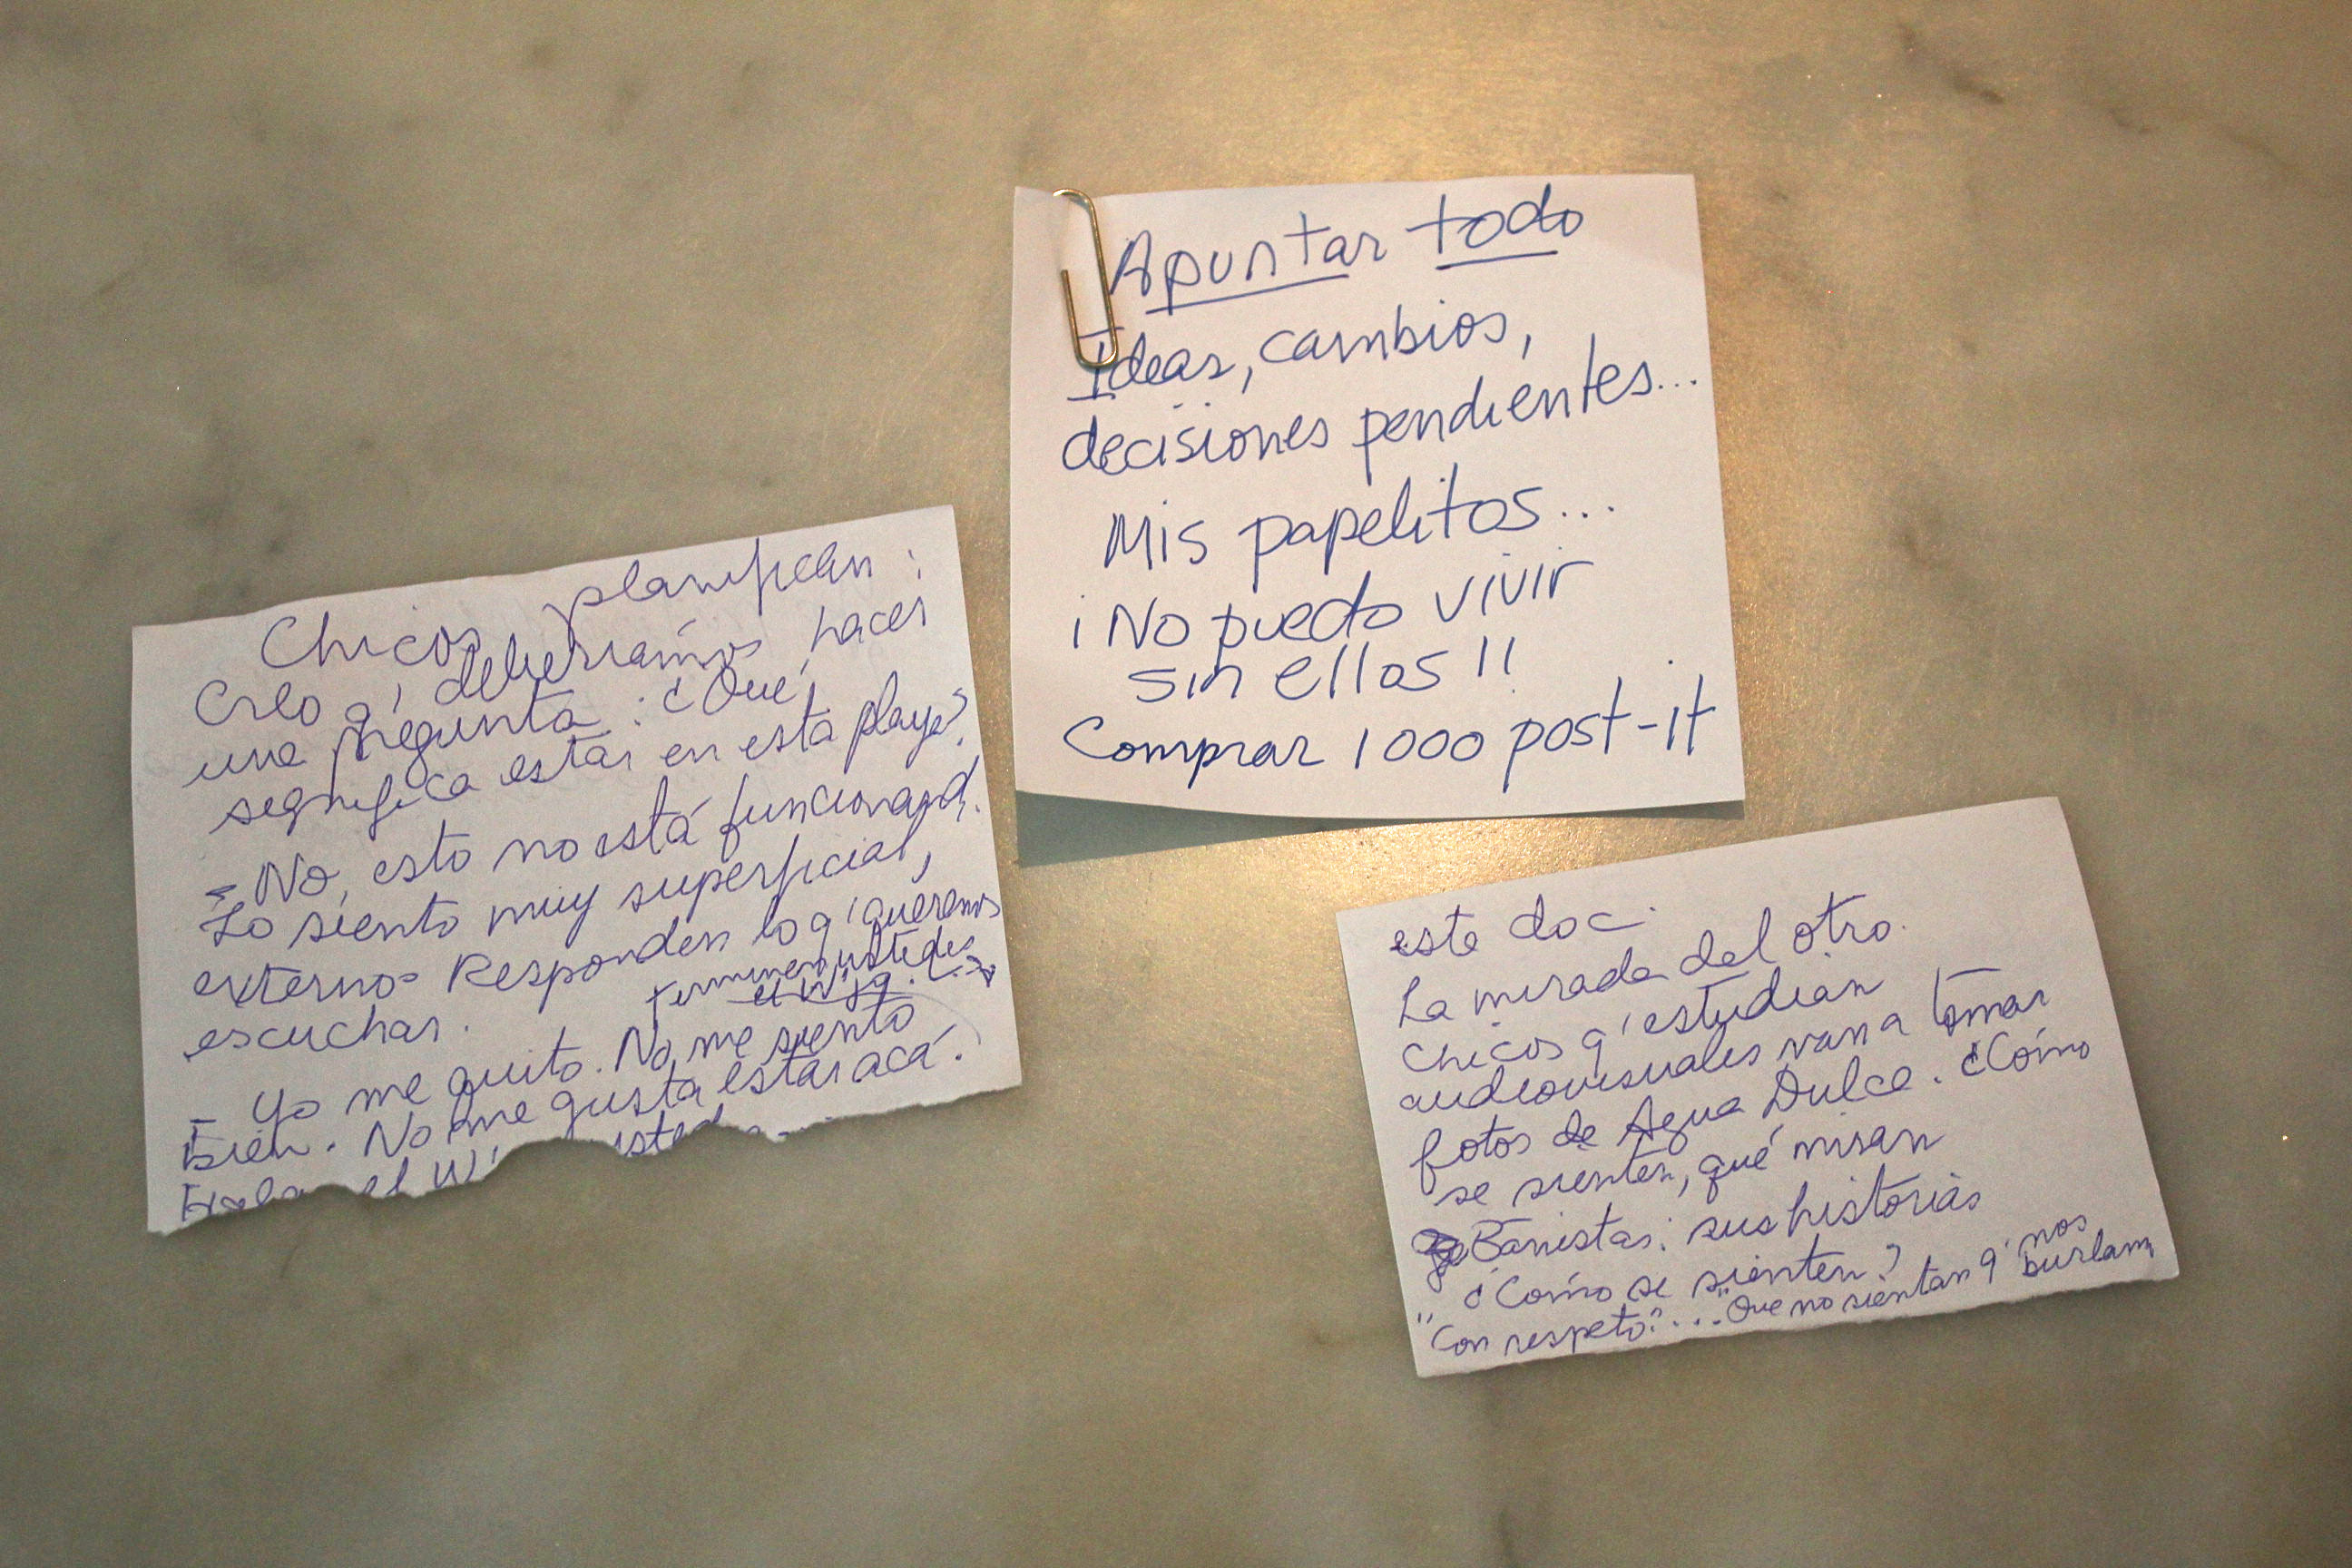 Chicos planifican:
Creo q' deberíamos hacer
una pregunta: ¿Qué
significa estar en esta playa?
- No, esto no está funcionand.
Lo siento muy superficial,
externo. Responden lo q' queremos
escuchar.
terminen ustedes
- Yo me quito. No me siento
bien. No me gusta estar acá.
Apuntar todo
Ideas, cambios,
decisiones pendientes...
Mis papelitos...
¡No puedo vivir
sin ellos!!
Comprar 1000 post-it
este doc.
La mirada del otro.
Chicos q' estudian
audiovisuales van a tomar
fotos de Agua Dulce. ¿Cómo
se sienten, qué miran
Bañistas: sus historias
¿Cómo se sienten?
"Con respeto"... "Que no sientan q' nos burlam